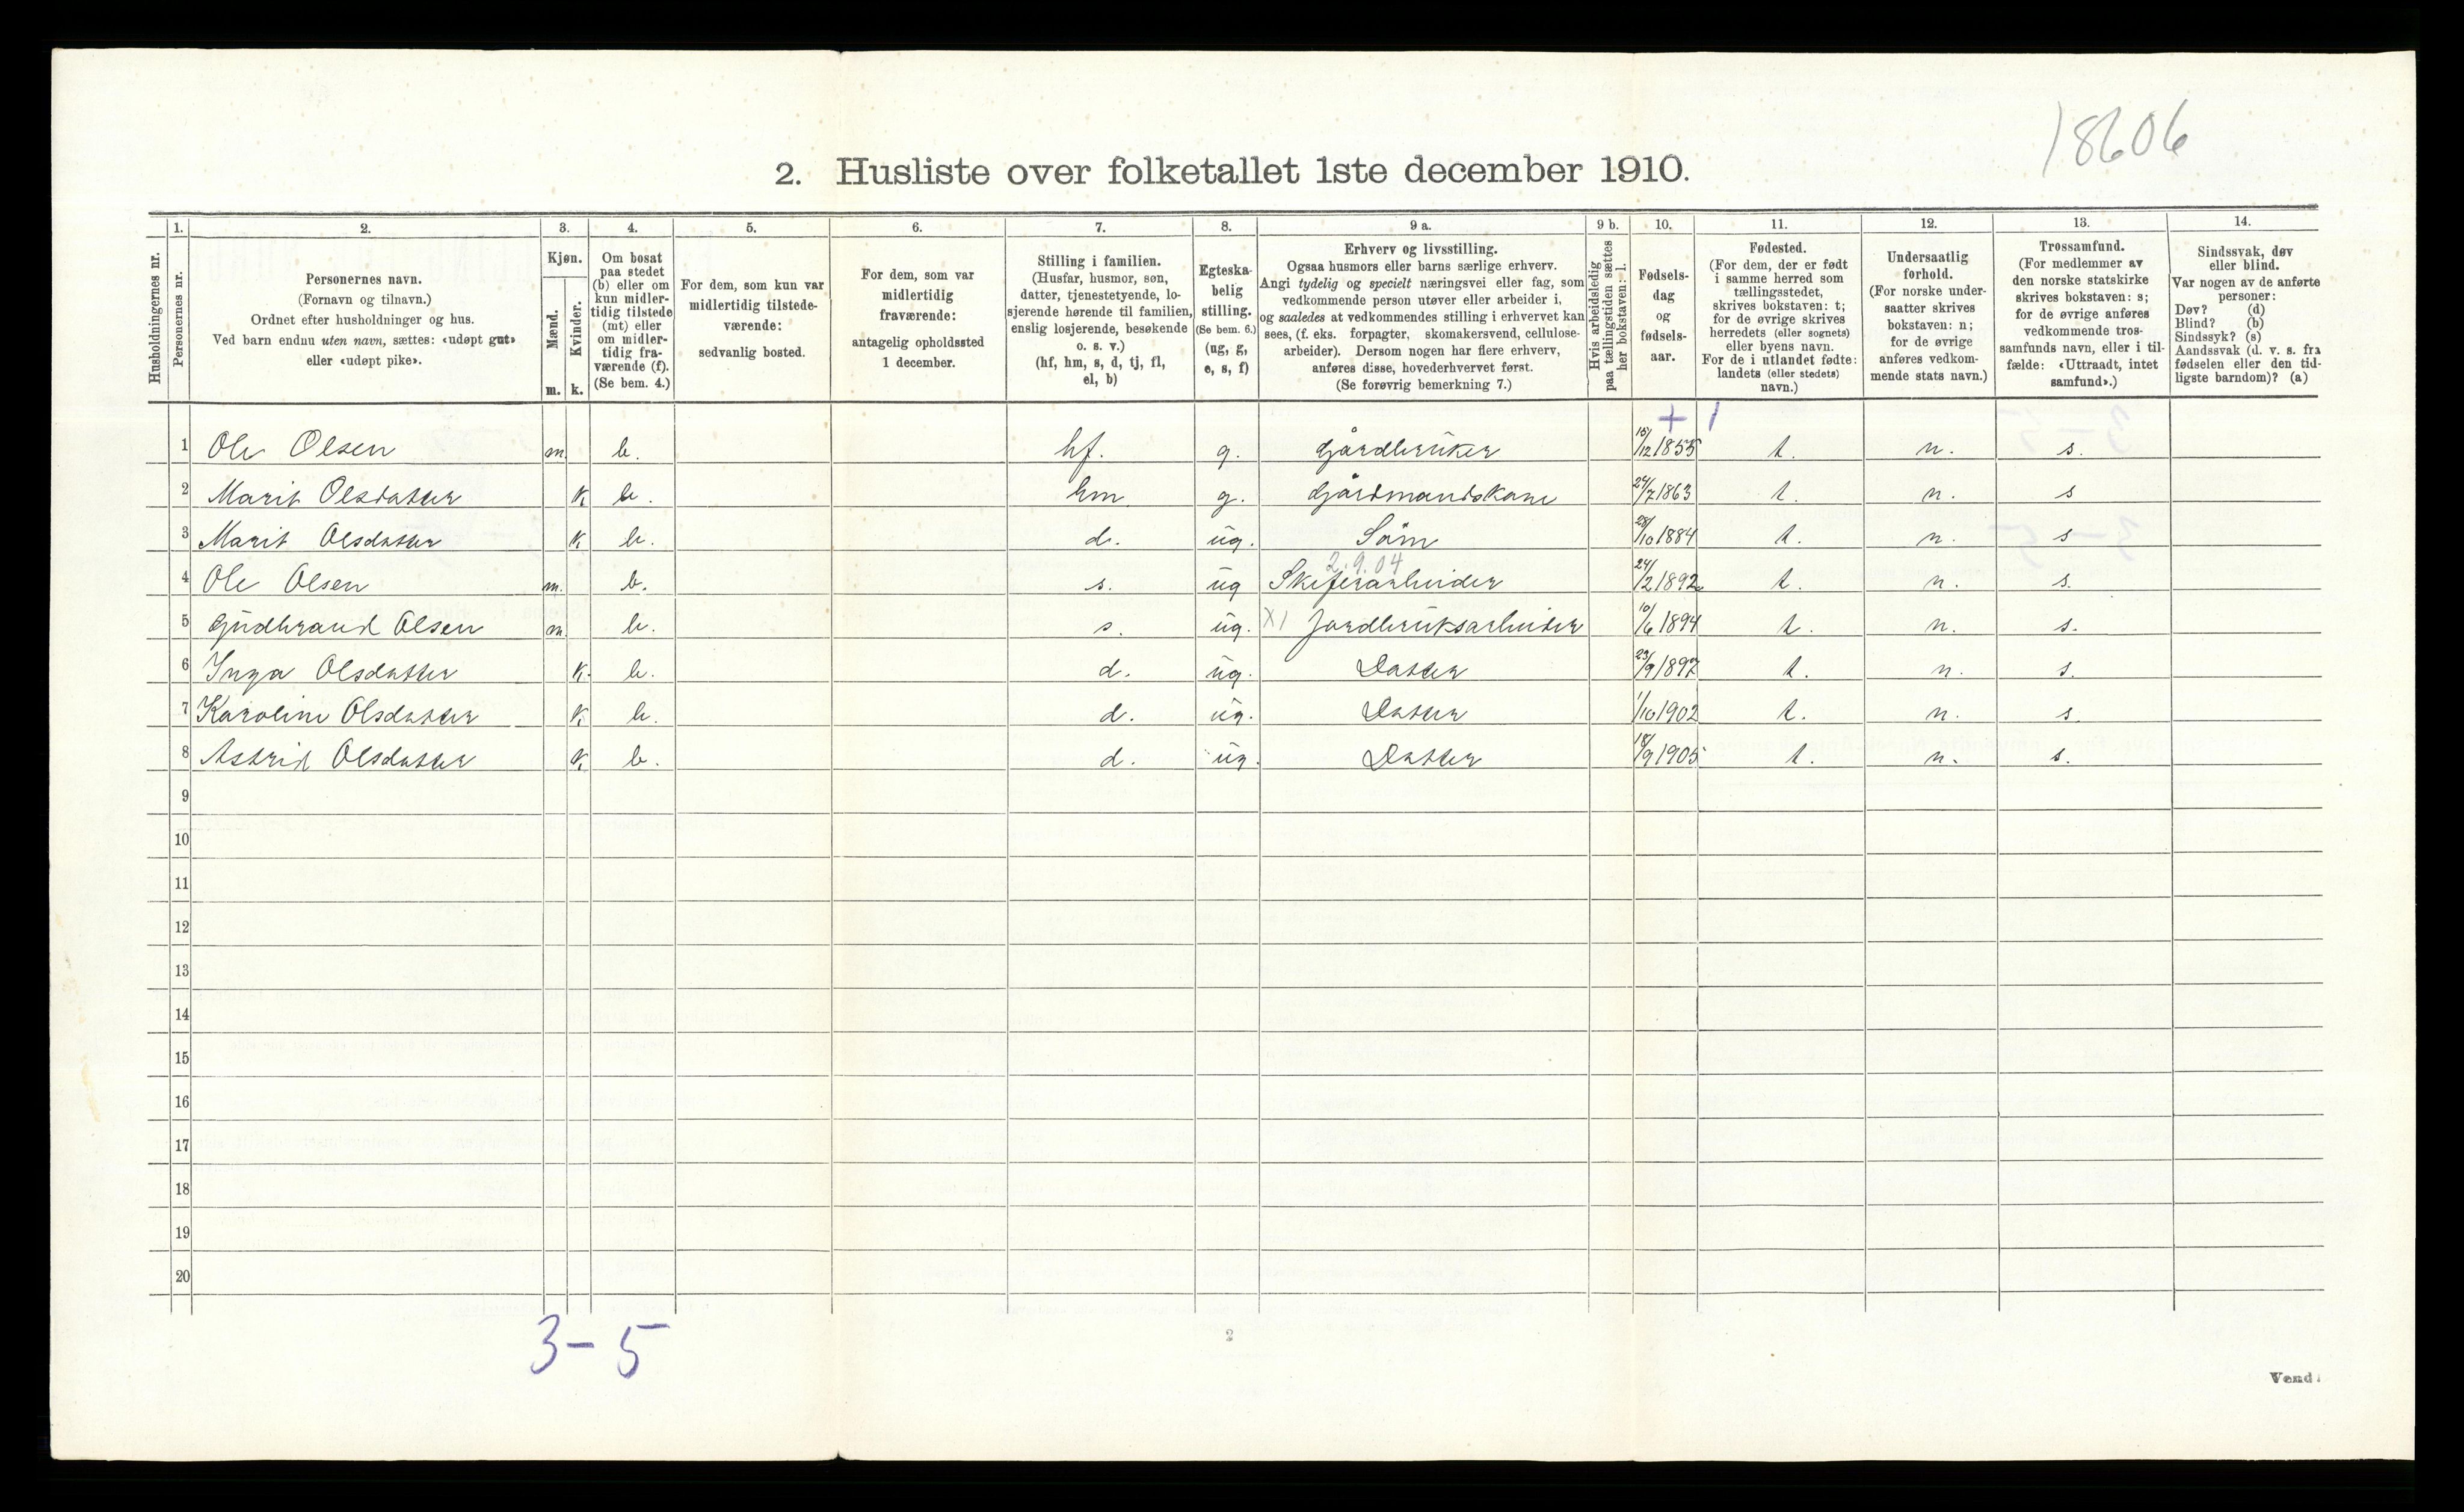 18606
2. Husliste over folketallet 1ste december 1910.
Husholdningernes nr.
1.
Personernes nr.
2.
Personernes navn.
(Fornavn og tilnavn.)
Ordnet efter husholdninger og hus.
Ved barn endnu uten navn, sættes: «udøpt gut»
eller «udøpt pike».
3.
Kjøn.
Mænd.
Kvinder.
m. k.
4.
Om bosat
paa stedet
(b) eller om
kun midler-
tidig tilstede
(mt) eller
om midler-
tidig fra-
værende (f).
(Se bem. 4.)
5.
For dem, som kun var
midlertidig tilstede-
værende:
sedvanlig bosted.
6.
For dem, som var
midlertidig
fraværende:
antagelig opholdssted
1 december.
7.
Stilling i familien.
(Husfar, husmor, søn,
datter, tjenestetyende, lo-
sjerende hørende til familien,
enslig losjerende, besøkende
o. s. v.)
(hf, hm, s, d, tj, fl,
el, b)
8.
Egteska-
belig
stilling.
(Se bem. 6.)
(ug, g,
e, s, f)
9 a.
Erhverv og livsstilling.
Ogsaa husmors eller barns særlige erhverv.
Angi tydelig og specielt næringsvei eller fag, som
vedkommende person utøver eller arbeider i,
og saaledes at vedkommendes stilling i erhvervet kan
sees, (f. eks. forpagter, skomakersvend, cellulose-
arbeider). Dersom nogen har flere erhverv,
anføres disse, hovederhvervet først.
(Se forøvrig bemerkning 7.)
9 b.
Hvis arbeidsledig
paa tællingstiden sættes
her bokstaven: l.
10.
Fødsels-
dag
og
fødsels-
aar.
11.
Fødested.
(For dem, der er født
i samme herred som
tællingsstedet,
skrives bokstaven: t;
for de øvrige skrives
herredets (eller sognets)
eller byens navn.
For de i utlandet fødte:
landets (eller stedets)
navn.)
12.
Undersaatlig
forhold.
(For norske under-
saatter skrives
bokstaven: n;
for de øvrige
anføres vedkom-
mende stats navn.)
13.
Trossamfund.
(For medlemmer av
den norske statskirke
skrives bokstaven: s;
for de øvrige anføres
vedkommende tros-
samfunds navn, eller i til-
fælde: «Uttraadt, intet
samfund».)
14.
Sindssvak, døv
eller blind.
Var nogen av de anførte
personer:
Døv? (d)
Blind? (b)
Sindssyk? (s)
Aandssvak (d. v. s. fra
fødselen eller den tid-
ligste barndom)? (a)
+ 1
1 Ole Olsen m. b. hf. g. Gårdbruker 15/12 1855 t. n. s.
2 Marit Olsdatter k b. hm g. Gårdmandskone 24/7 1863 t. n. s
3 Marit Olsdatter k b. d. ug. Söm 28/10 1884 t. n. s
2.9.04
4 Ole Olsen m. b. s. ug Skiferarbeider 24/2 1892 t. n. s.
5 Gudbrand Olsen m b. s. ug. X1 Jordbruksarbeider 10/6 1894 t. n. s.
6 Inga Olsdatter k. b. d. ug. Datter 23/9 1897 t. n. s.
7 Karoline Olsdatter k b. d. ug. Datter 1/10 1902 t. n. s.
8 Astrid Olsdatter k b. d. ug. Datter 18/9 1905 t. n. s.
9
10
11
12
13
14
15
16
17
18
19
20
3-5
2
Vend!